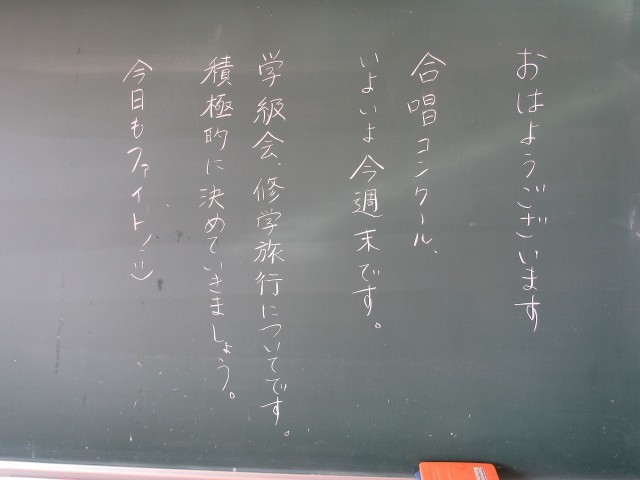 おはようございます
合唱コンクール、
いよいよ今週末です。
学級会、修学旅行についてです。
積極的に決めていきましょう。
今日もファイト!:)